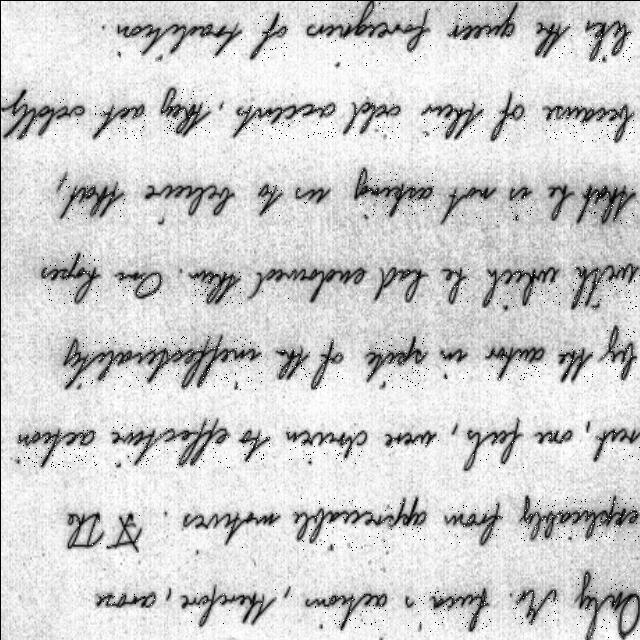 Only Mr. action, therefore, arose
explicably from appreciable motives. The
rest, one feels, were driven to effective action
by the autor in spite of the ineffectuality
with which he had endowed them. One hopes
that he is not asking us to believe that,
because of their odd accents, they act oddly
like the queer foreigners of tradition.